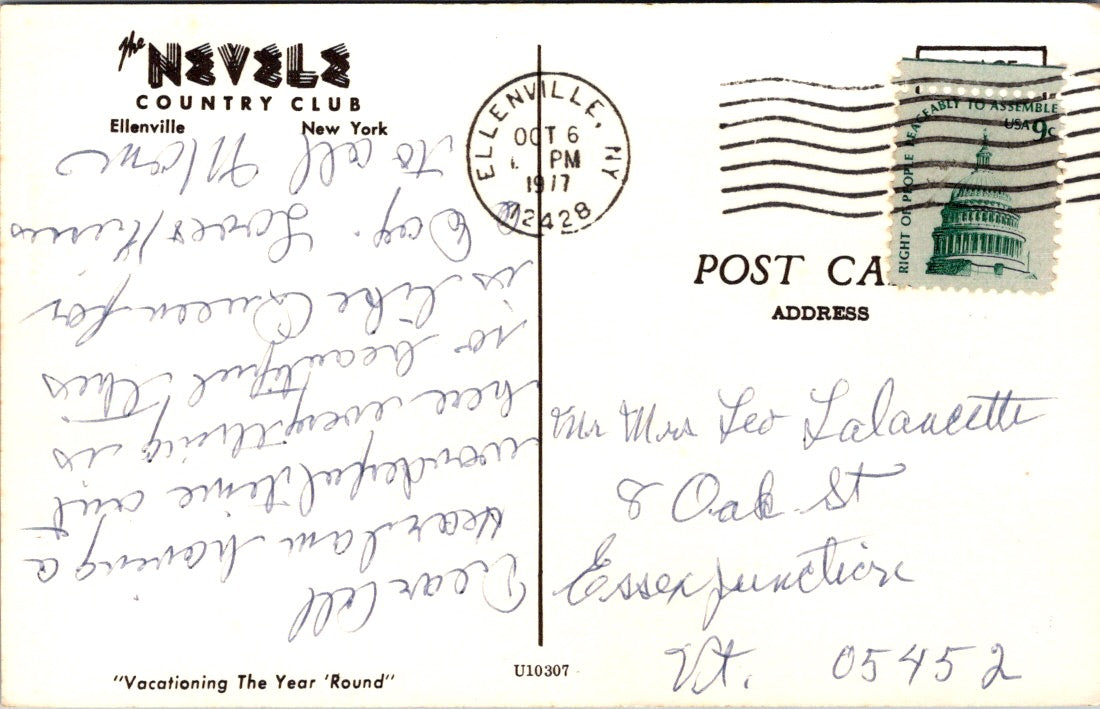 The NEVELE
COUNTRY CLUB
Ellenville New York
Dear all
I am having a
wonderful time out
here everything is
so beautiful this
is like Queen for
a Day. Loves/Kisses
to all Mom
"Vacationing The Year 'Round"
U10307
ELLENVILLE, NY
OCT 6
PM
1977
12428
RIGHT OF PEOPLE PEACEABLY TO ASSEMBLE
USA 9c
POST CA
ADDRESS
Mr Mrs Leo Lalancette
8 Oak St
Essex Junction
Vt. 05452